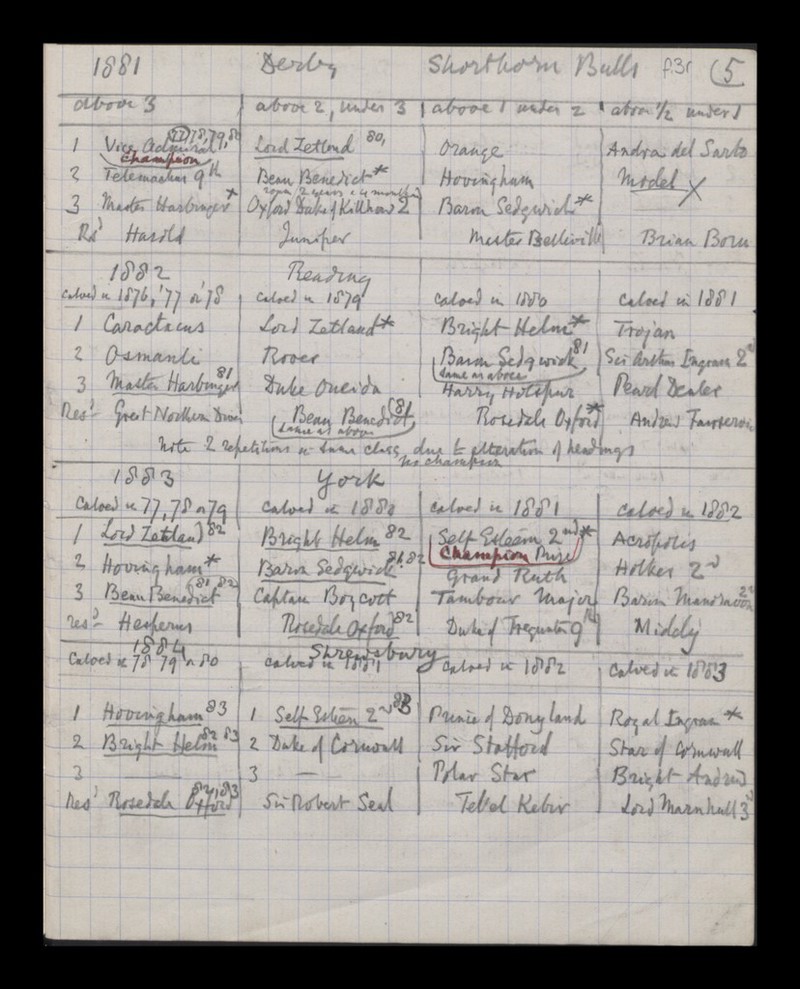 1881 Derby Shorthorn Bulls f.3r (5
above 3 above 2, under 3 above 1 under 2 above 1/2 under 1
1 Vice Admiral 77, 78, 79, 80 Lord Zetland 80, Orange Andrea del Sarto
champion
2 Telemachus 9th Beau Benedict* Hovingham Model X
2 years & 4 months
3 Master Harbinger* Oxford Duke of Killhow 2 Baron Sedgwick*
Rsd Harold Juniper Master Belleville Brian Born
1882 Reading
calved in 1876, '77 or '78 calved in 1879 calved in 1880 calved in 1881
1 Caractacus Lord Zetland* Bright Helm* Trojan
2 Osmanli Rover Baron Sedgwick 81 Sir Arthur Ingram 2d
same as above
3 Master Harbinger 81 Duke Oneida Harry Hotspur Pearl Dealer
Resd Great Northern Beau Benedict (81 Rosedale Oxford* Andrew
same as above
note 2 repetitions in same class, due to alteration of headings
no champion
1883 York
calved in 77, 78 or 79 calved in 1880 calved in 1881 calved in 1882
1 Lord Zetland 82 Bright Helm 82 Self Esteem 2nd* Acropolis
Champion Prize
2 Hovingham* Baron Sedgwick 81.82 Grand Ruth Holker 2d
3 Beau Benedict (81, 82) Captain Boycott Tambour Major Baron
resd Hesperus Rosedale Oxford 82 Duke of Tregunter 9th Middy
1884 Shrewsbury
Calved in 78 79 or 80 calved in 1881 calved in 1882 calved in 1883
1 Hovingham 83 1 Self Esteem 2d 83 Prince of Donyland Royal Ingram*
2 Bright Helm 82 83 2 Duke of Cornwall Sir Stafford Star of Cornwall
3 — 3 — Polar Star Bright Andrew
Resd Rosedale Oxford 82, 83 Sir Robert Seal Tebel Kebir Lord Marnhull 3d